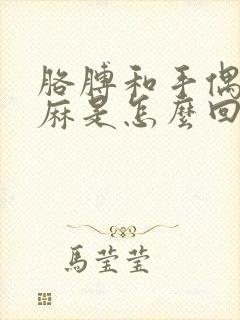 胳膊和手偶
麻是怎麼回
馬莹莹